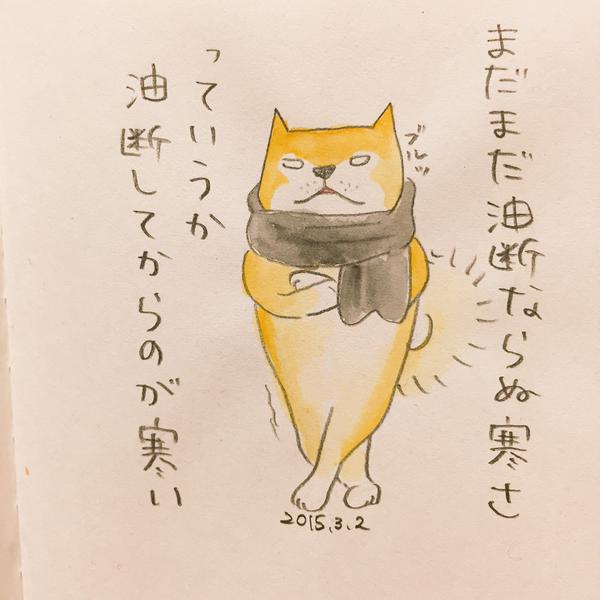 まだまだ油断ならぬ寒さ
ブルッ
っていうか
油断してからのが寒い
2015.3.2